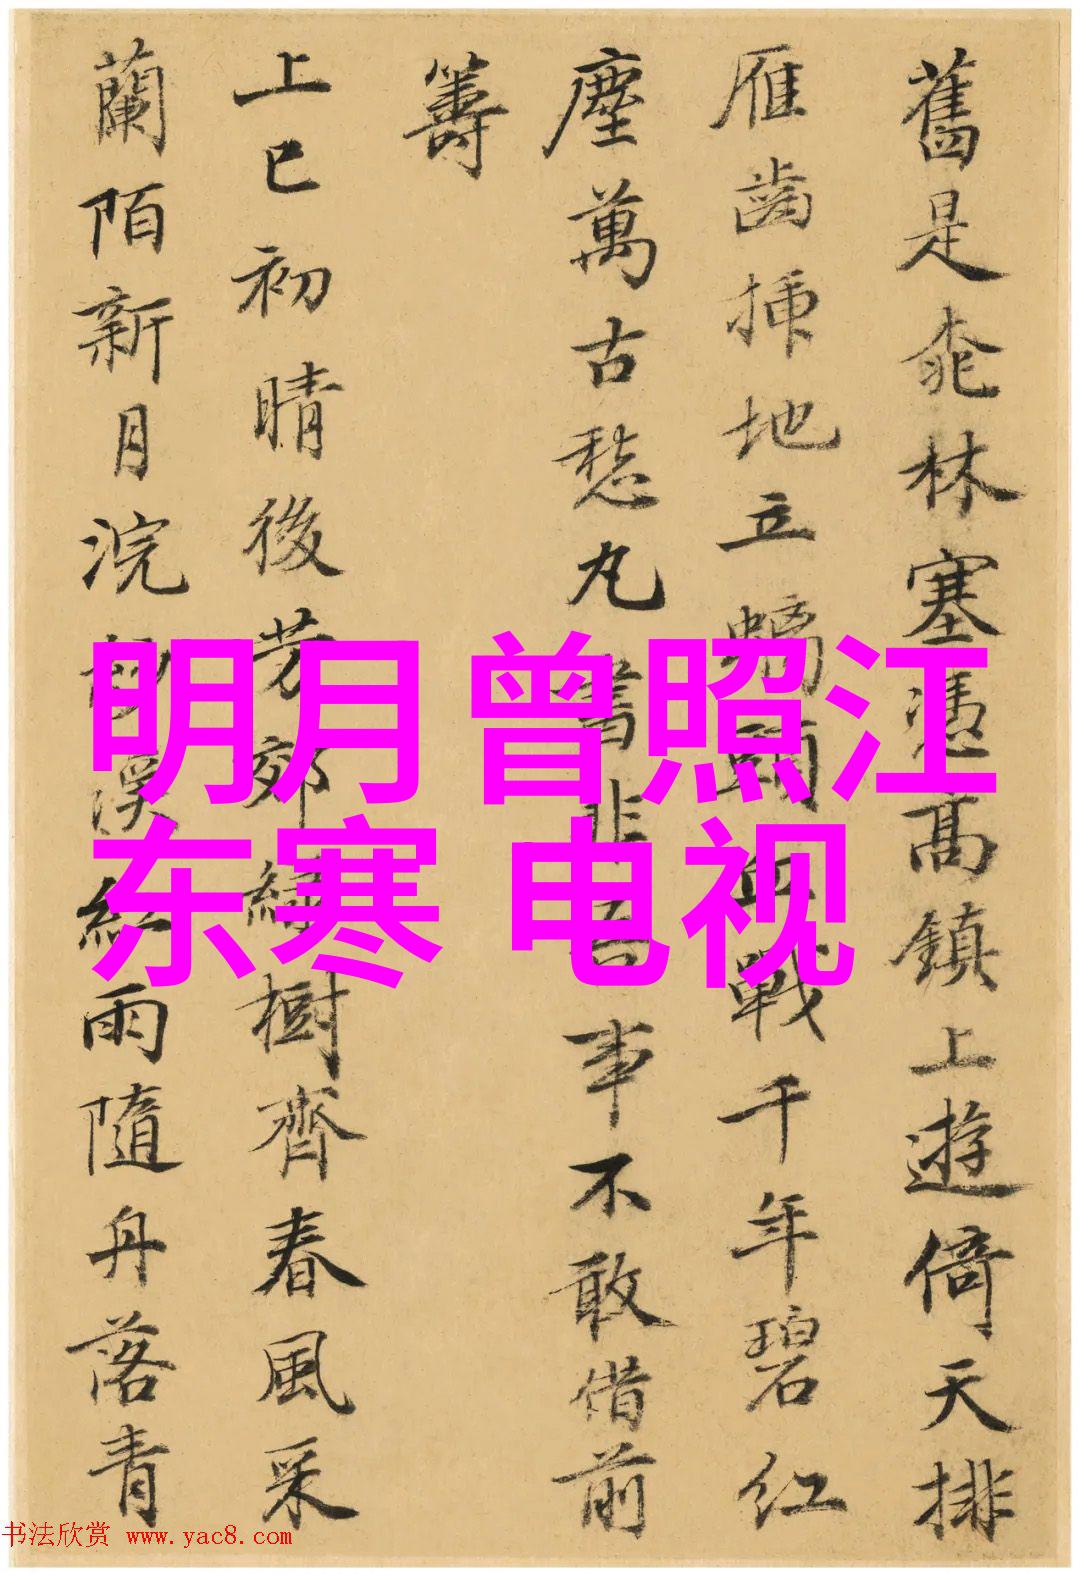 舊是桃林塞憑高鎮上遊倚天排
雁齒插地立螭頭血戰千年碧紅
塵萬古愁丸書非吾事不敢借前
籌
上巳初晴後芳郊綠樹齊春風采
蘭陌新月浣紗溪紅雨隨舟落青
明月曾照江
东寒 电视
书法欣赏 www.yac8.com